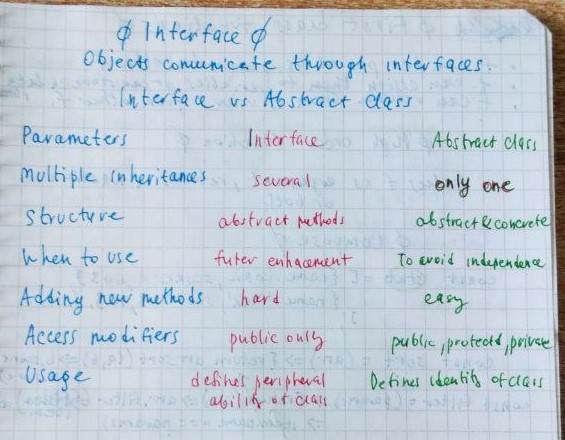 ϕ Interface ϕ
Objects comunicate through interfaces.
Interface vs Abstract class
Parameters Interface Abstract class
Multiple inheritances several only one
Structure abstract methods abstract & concrete
When to use futer enhacement To avoid independence
Adding new methods hard easy
Access modifiers public only public, protectd, private
Usage defines peripheral Defines identity of class
ability of class